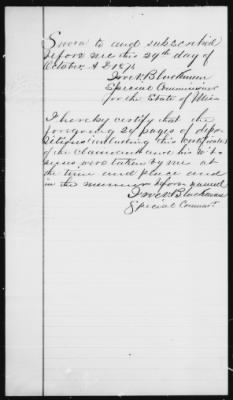 Sworn to and subscribed
before me this 29th day of
October A D 1874
Special Commissioner
for the State of Miss
I hereby certify that the
foregoing 24 pages of depo
sitions including this certificate
of the claimant and his wit-
nesses were taken by me at
the time and place and
in the manner before named
Special Commr